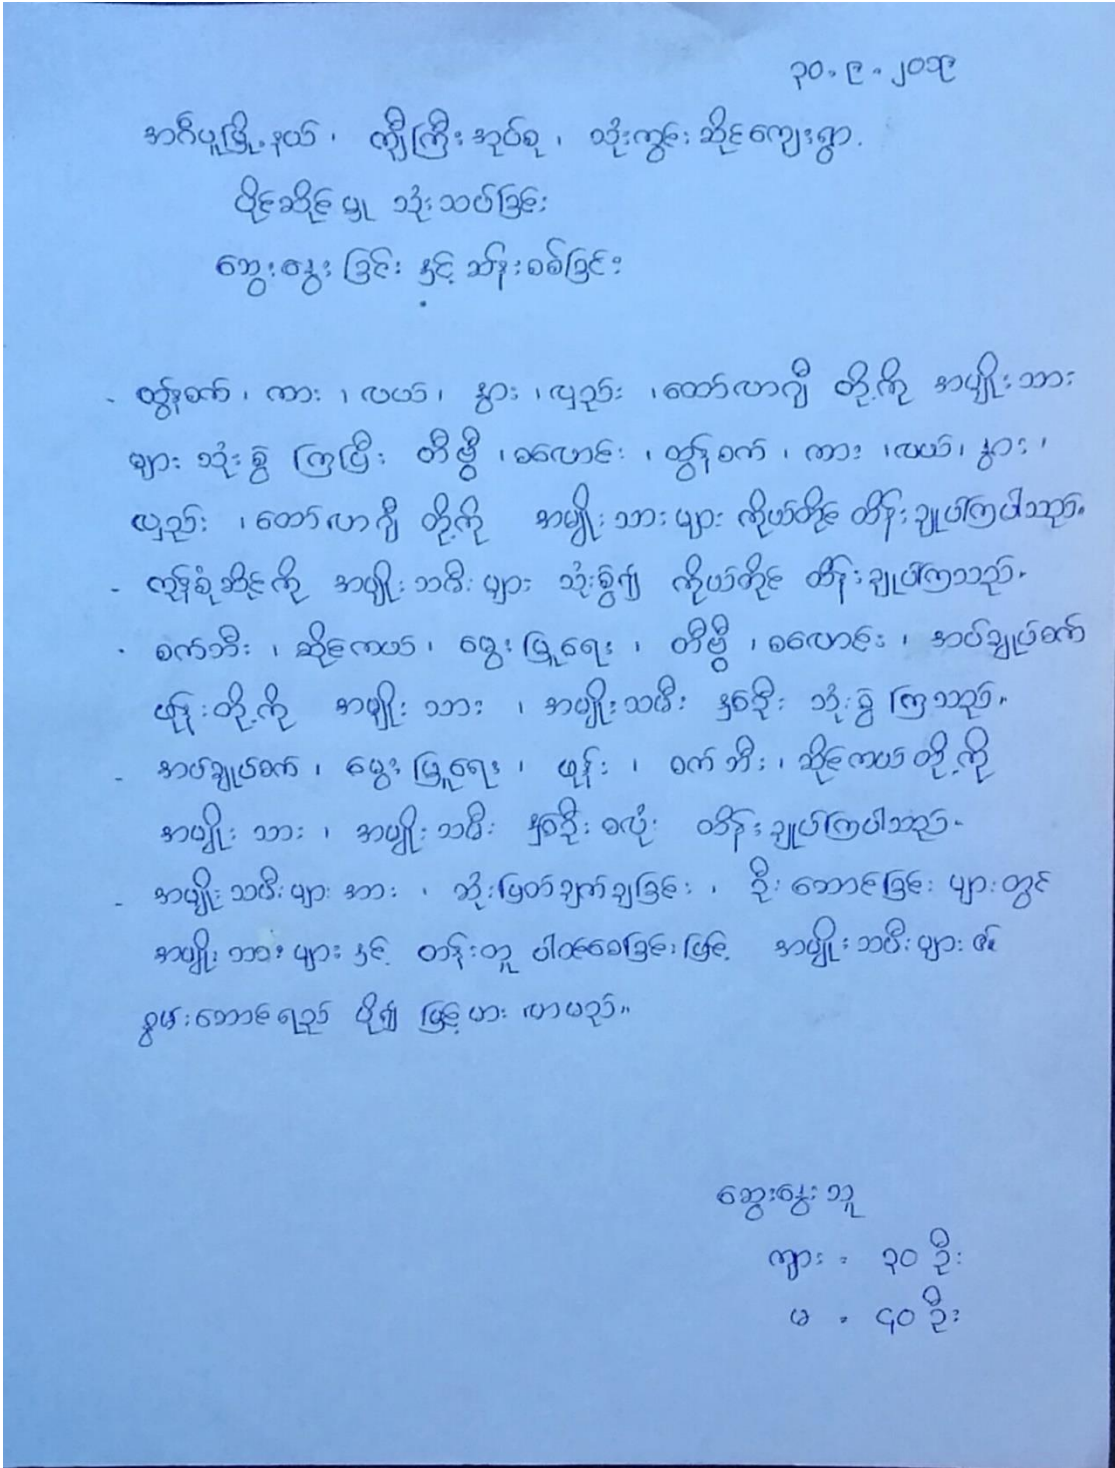 ၃၀-၉-၂၀၁၉
အင်ပူမြို့နယ်၊ ကျီကြီးအုပ်စု၊ သုံးကွင်းဆိုင်ကျေးရွာ.
ပိုင်ဆိုင်မှု သုံးသပ်ခြင်း
ဆွေးနွေးခြင်း နှင့် ဆန်းစစ်ခြင်း
- ထွန်စက်၊ ကား၊ လယ်၊ နွား၊ လှည်း၊ ထော်လာဂျီ တို့ကို အမျိုးသား
များ သုံးစွဲ ကြပြီး တီဗွီ၊ စလောင်း၊ ထွန်စက်၊ ကား၊ လယ်၊ နွား၊
လှည်း၊ ထော်လာဂျီ တို့ကို အမျိုးသားများ ကိုယ်တိုင် ထိန်းချုပ်ကြပါသည်။
- ကုန်စုံဆိုင်ကို အမျိုးသမီးများ သုံးစွဲ၍ ကိုယ်တိုင် ထိန်းချုပ်ကြသည်။
- စက်ဘီး၊ ဆိုင်ကယ်၊ မွေးမြူရေး၊ တီဗွီ၊ စလောင်း၊ အပ်ချုပ်စက်
ဖုန်းတို့ကို အမျိုးသား၊ အမျိုးသမီး နှစ်ဦး သုံးစွဲ ကြသည်။
- အပ်ချုပ်စက်၊ မွေးမြူရေး၊ ဖုန်း၊ စက်ဘီး၊ ဆိုင်ကယ် တို့ကို
အမျိုးသား၊ အမျိုးသမီး နှစ်ဦးစလုံး ထိန်းချုပ်ကြပါသည်။
- အမျိုးသမီးများအား၊ ဆုံးဖြတ်ချက်ချခြင်း၊ ဦးဆောင်ခြင်းများတွင်
အမျိုးသားများနှင့် တန်းတူ ပါဝင်စေခြင်းဖြင့် အမျိုးသမီးများ၏
စွမ်းဆောင်ရည် ပို၍ မြင့်မား လာမည်။
ဆွေးနွေးသူ
ကျား - ၃၀ ဦး
မ - ၄၀ ဦး